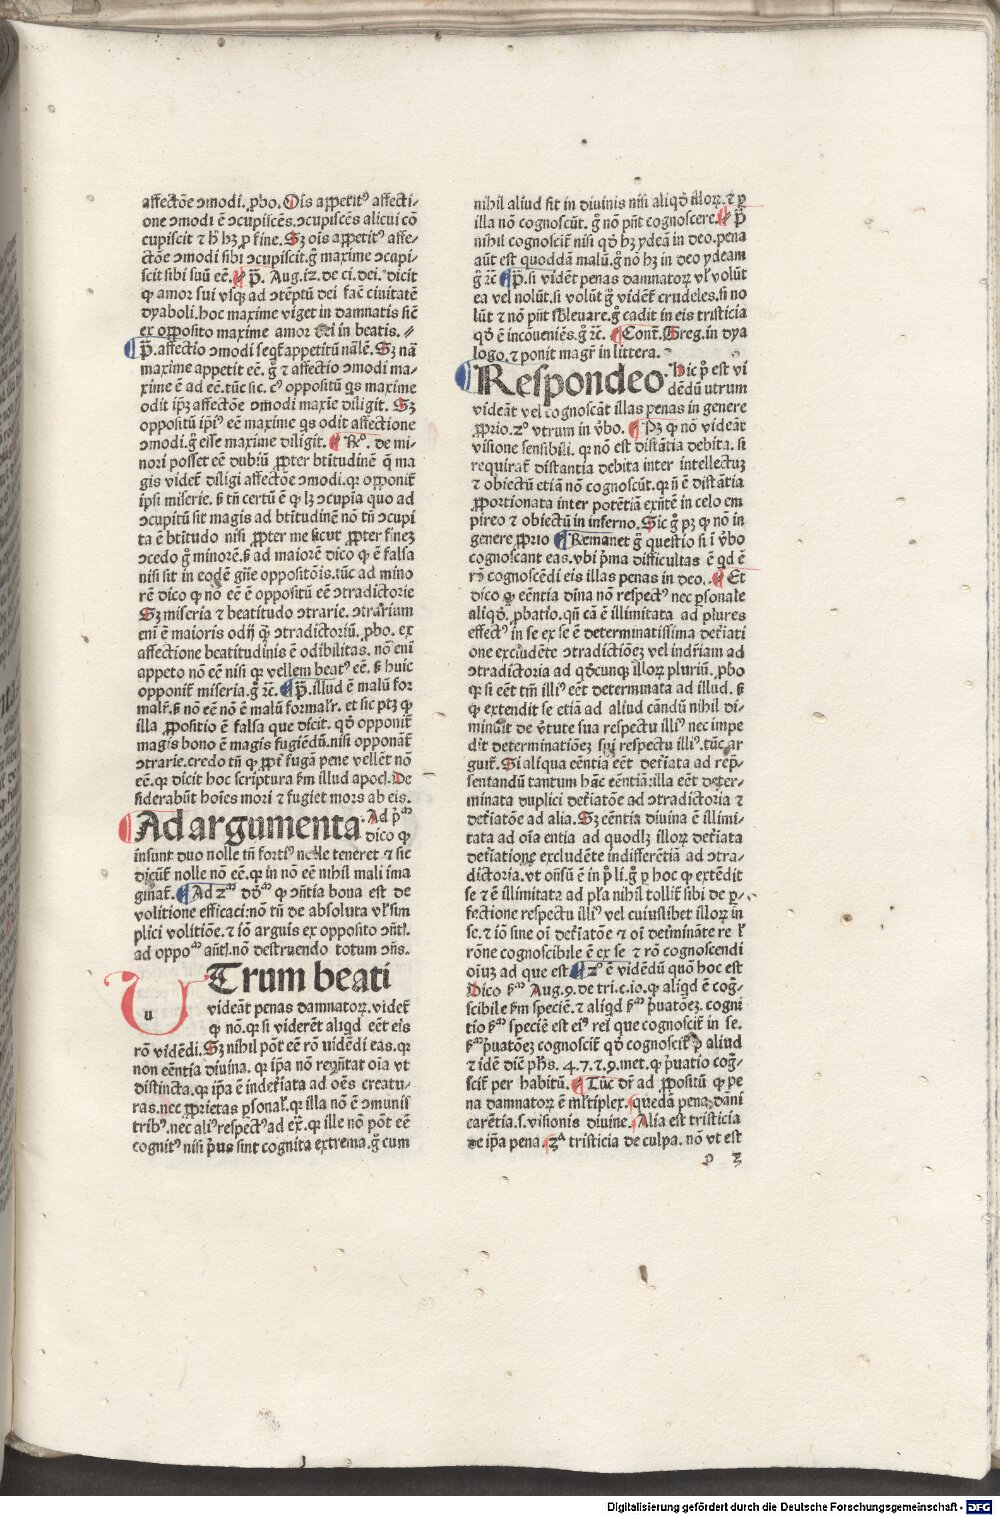 affectiõe ꝯmodi. ꝓbo. Ois appetitꝰ affecti-
one ꝯmodi ē ꝯcupiscēs. ꝯcupiscēs alicui cō
cupiscit ⁊ hͦ hꝫ ꝓ fine. Sꝫ ois appetitꝰ affe-
ctiõe ꝯmodi sibi ꝯcupiscit. gͦ maxime ꝯcupi-
scit sibi suū eē. ¶ P̄. Aug. iz. de ci. dei. dicit
ꝙ amor sui vsqꝫ ad ꝯtēptū dei facͭ ciuitatē
dyaboli. hoc maxime viget in damnatis sicͭ
ex opposito maxime amor dei in beatis. //
¶ P̄. affectio ꝯmodi seqͭ appetitū nālē. Sꝫ nā
maxime appetit eē. gͦ ⁊ affectio ꝯmodi ma-
xime ē ad eē. tūc sic. cͥꝰ oppositū qͥs maxime
odit ip̄ꝫ affectiõe ꝯmodi maxīe diligit. Sꝫ
oppositū ip̄iꝰ eē maxime qͥs odit affectione
ꝯmodi. gͦ eisse maxime diligit. ¶ Rͦ. de mi-
nori posset eē dubiū ꝓpter btītudinē qͥ ma
gis videtͭ diligi affectiõe ꝯmodi. qꝛ opponitͭ
ip̄si miserie. ꝭ tn̄ certū ē ꝙ lꝫ ꝯcupīa quo ad
ꝯcupitū sit magis ad btītudinē nō tn̄ ꝯcupi
ta ē btītudo nisi ꝓpter me sicut ꝓpter fineꝫ
ꝯcedo gͦ minorē. ꝭ ad maiorē dico ꝙ ē falsa
nisi sit in eodē gn̄e oppositōis. tūc ad mino
rē dico ꝙ nō eē ē oppositū eē ꝯtradictorie
Sꝫ miseria ⁊ beatitudo ꝯtrarie. ꝯtrarium
enī ē maioris odij qͣ ꝯtradictoriū. ꝓbo. ex
affectione beatitudinis ē odibilitas. nō enī
appeto nō eē nisi qꝛ vellem beatꝰ eē. ꝭ huic
opponitͭ miseria. gͦ ⁊c̄. ¶ P̄. illud ē malū for
malͬ. ꝭ nō eē nō ē malū formalͬ. et sic ptꝫ ꝙ
illa ꝓpositio ē falsa que dicit. qd̕ opponitͭ
magis bono ē magis fugiēdū. nisi opponātͭ
ꝯtrarie. credo tn̄ ꝙ ꝓptͬ fugā pene vellētͭ nō
eē. qꝛ dicit hoc scriptura ẜm illud apocͣl. De
siderabūt hoīes mori ⁊ fugiet mors ab eis.
Ad argumenta. Ad p̄ᵐ
dico ꝙ
insunt duo nolle tn̄ fortiꝰ nolle teneret ⁊ sic
dicitͭ nolle nō eē. qꝛ in nō eē nihil mali ima
ginatͭ. ¶ Ad zᵐ dōͫ ꝙ ꝯn̄tia bona est de
volitione efficaci: nō tn̄ de absoluta vͬl sim
plici volitiōe. ⁊ iō arguis ex opposito ꝯn̄tͭ.
ad oppoᵐ an̄tͭ. nō destruendo totum ꝯn̄s.
UTrum beati
u
videāt penas damnatoꝝ. videtͭ
ꝙ nō. qꝛ si viderēt aliqd eēt eis
rō vidēdi. Sꝫ nihil pōt eē rō uidēdi eas. qꝛ
non eēntia diuina. qꝛ ip̄a nō rep̄ntat oīa vt
distincta. qꝛ ip̄a ē indetͬīata ad oēs creatu-
ras. nec ꝓprietas ꝑsonalͬ. qꝛ illa nō ē ꝯmunis
tribꝰ. nec aliꝰ respectꝰ ad exͣ. qꝛ ille nō pōt eē
cognitꝰ nisi p̄us sint cognita extrema. gͦ cum
nihil aliud sit in diuinis nisi aliqd̕ illoꝝ. ⁊ ꝑ
illa nō cognoscūt. gͦ nō pn̄t cognoscere. ¶ P̄
nihil cognoscitͭ nisi qd̕ hꝫ ydeā in deo. pena
aūt est quoddā malū. gͦ nō hꝫ in deo ydeam
gͦ ⁊c̄. ¶ P̄. si vidētͭ penas damnatoꝝ vͬl volūt
ea vel nolūt. si volūt gͦ vidētͭ crudeles. si no
lūt ⁊ nō pn̄t ẜbleuare. gͦ cadit in eis tristicia
qd̕ ē incōueniēs. gͦ ⁊c̄. ¶ Contͬ. Greg. in dya
logo. ⁊ ponit magrͬ in littera.
¶ Respondeo. Hic pͦ est vi
dēdū utrum
videāt vel cognoscāt illas penas in genere
ꝓprio. zͦ vtrum in v̕bo. ¶ Pꝫ ꝙ nō videāt
visione sensibili. qꝛ nō est distātia debita. si
requiratͭ distantia debita inter intellectuꝫ
⁊ obiectū etiā nō cognoscūt. qꝛ nͦ ē distātia
ꝓportionata inter potētiā exn̄tē in celo em
pireo ⁊ obiectū in inferno. Sic gͦ pꝫ ꝙ nō in
genere ꝓprio ¶ Remanet gͦ questio si ī v̕bo
cognoscant eas. vbi p̄ma difficultas ē qd ē
rō cognoscēdi eis illas penas in deo. ¶ Et
dico ꝙ eēntia dīna nō respectꝰ nec ꝑsonale
aliqd̕. ꝓbatio. qn̄ cā ē illimitata ad plures
effectꝰ in se ex se ē determinatissima detͬiati
one excludēte ꝯtradictiōeꝫ vel indrͬiam ad
ꝯtradictoria ad qd̕cunqꝫ illoꝝ pluriū. ꝓbo
qꝛ si eēt tm̄ illiꝰ eēt determinata ad illud. ꝭ
ꝙ extendit se etiā ad aliud cāndū nihil di-
minuit de v̕tute sua respectu illiꝰ nec impe
dit determinatiōeꝫ sui respectu illiꝰ. tūc ar
guitͭ. Si aliqua eēntia eēt detͬiata ad rep̄-
sentandū tantum hāc eēntiā: illa eēt deter-
minata duplici detͬiatōe ad ꝯtradictoria ⁊
detͬiatōe ad alia. Sꝫ eēntia diuina ē illimi-
tata ad oīa entia ad quodlꝫ illoꝝ detͬiata
detͬiatione excludēte indifferētia ad ꝯtra-
dictoria. vt on̄sū ē in pͥ li. gͦ ꝑ hoc ꝙ extēdit
se ⁊ ē illimitata ad pl̄a nihil tollitͭ sibi de ꝑ-
fectione respectu illiꝰ vel cuiuslibet illoꝝ in
se. ⁊ iō sine oī detͬiatōe ⁊ oī detͬmināte re lͬ
rōne cognoscibile ē ex se ⁊ rō cognoscendi
oīuꝫ ad que est ¶ zͦ ē vidēdū quō hoc est
Dico ẜᵐ Aug. 9. de tri. c. io. ꝙ aliqd ē cog̅-
scibile ẜm speciē. ⁊ aliqd ẜᵐ p̄uatoeꝫ. cogni
tio ẜᵐ speciē est eiꝰ rei que cognoscitͭ in se.
ẜᵐ p̄uatōeꝫ cognoscitͭ qd̕ cognoscitͭ ꝑ aliud
⁊ idē dicͭ ph̄s. 4. 7. ⁊. 9. met. ꝙ p̄uatio cog̅-
scitͭ per habitū. ¶ Tūc drͬ ad ꝓpositū ꝙ pe
na damnatoꝝ ē mͣltiplex. quedā pena dāni
carētia. s. visionis diuine. Alia est tristicia
de ip̄a pena. 3ᴬ tristicia de culpa. nō vt est
o 3
Digitalisierung gefördert durch die Deutsche Forschungsgemeinschaft - DFG